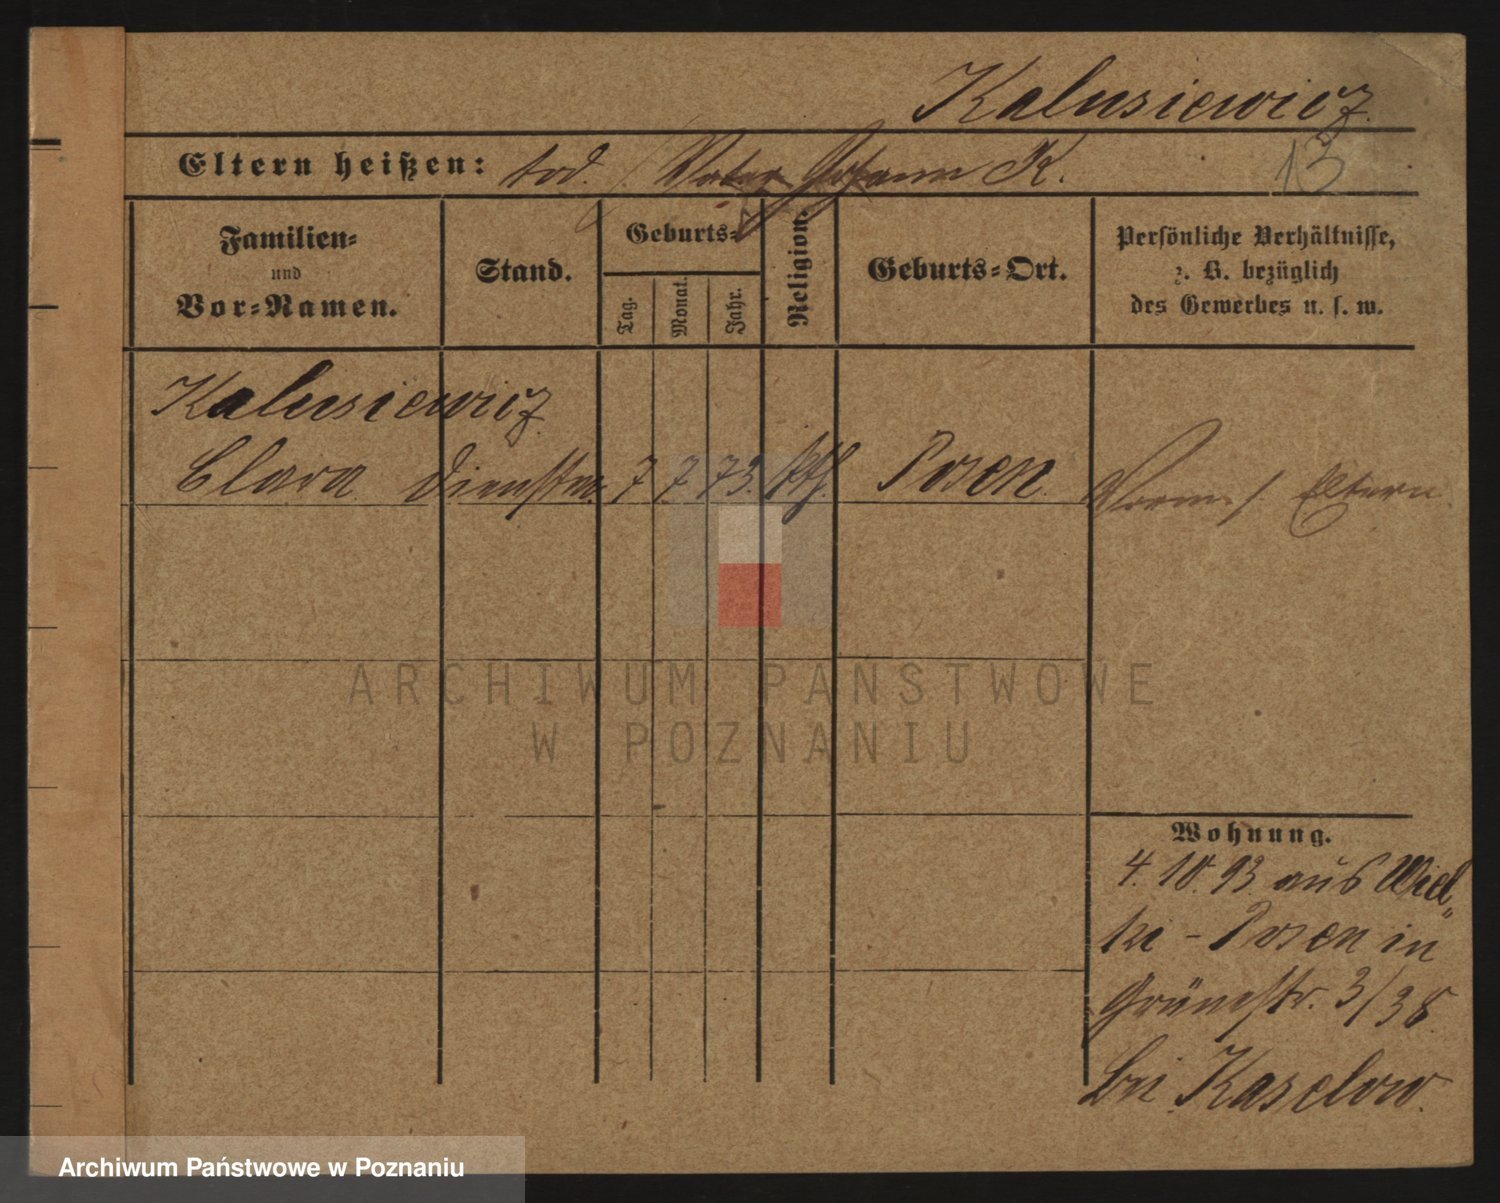 Kalusiewicz.
13
Eltern heißen: tod. / Vater Johann K.
Familien=
und
Vor=Namen.
Stand.
Geburts=
Tag.
Monat.
Jahr.
Religion.
Geburts=Ort.
Persönliche Verhältnisse,
z. B. bezüglich
des Gewerbes u. s. w.
Kalusiewicz
Clara Dienstm. 7 7 73. kth. Posen. Vorm. / Eltern.
ARCHIWUM PAŃSTWOWE
W POZNANIU
Wohnung.
4. 10. 93. aus Wiel„
ki - Posen in
Grünestr. 3/38.
bei Kaselow.
Archiwum Państwowe w Poznaniu